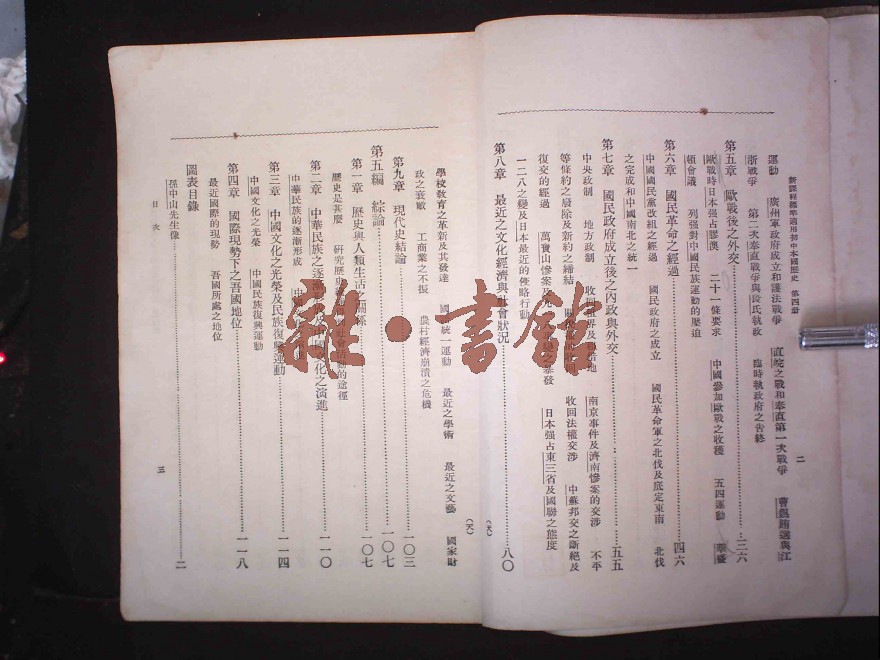 新課程標準適用初中本國歷史 第四冊
二
運動 廣州軍政府成立和護法戰爭 直皖之戰和奉直第一次戰爭 曹錕賄選與江
浙戰爭 第二次奉直戰爭與段氏執政 臨時執政府之告終
第五章 歐戰後之外交 三六
歐戰時日本强占膠澳 二十一條要求 中國參加歐戰之收穫 五四運動 華盛
頓會議 列强對中國民族運動的壓迫
第六章 國民革命之經過 四六
中國國民黨改組之經過 國民政府之成立 國民革命軍之北伐及底定東南 北伐
之完成和中國南北之統一
第七章 國民政府成立後之內政與外交 五五
中央政制 地方政制 收回租界及 地 南京事件及濟南慘案的交涉 不平
等條約之廢除及新約之締結 收回法權交涉 中蘇邦交之斷絕及
復交的經過 萬寶山慘案及 暴發 日本强占東三省及國聯之態度
一二八之變及日本最近的侵略行動
第八章 最近之文化經濟與社會狀況 八〇
(天)
學校敎育之革新及其發達 國 統一運動 最近之學術 最近之文藝 國家財
政之衰敝 工商業之不振 農村經濟崩潰之危機
(天)
第九章 現代史結論 一〇三
第五編 綜論 一〇七
第一章 歷史與人類生活之關係 一〇七
歷史是甚麼 研究歷史 社會活動的途徑
第二章 中華民族之逐漸 及中國文化之演進 一一〇
中華民族的逐漸形成 中
第三章 中國文化之光榮及民族復興運動 一一四
中國文化之光榮 中國民族復興運動
第四章 國際現勢下之吾國地位 一一八
最近國際的現勢 吾國所處之地位
圖表目錄
孫中山先生像 二
目 次
三
雜·書館